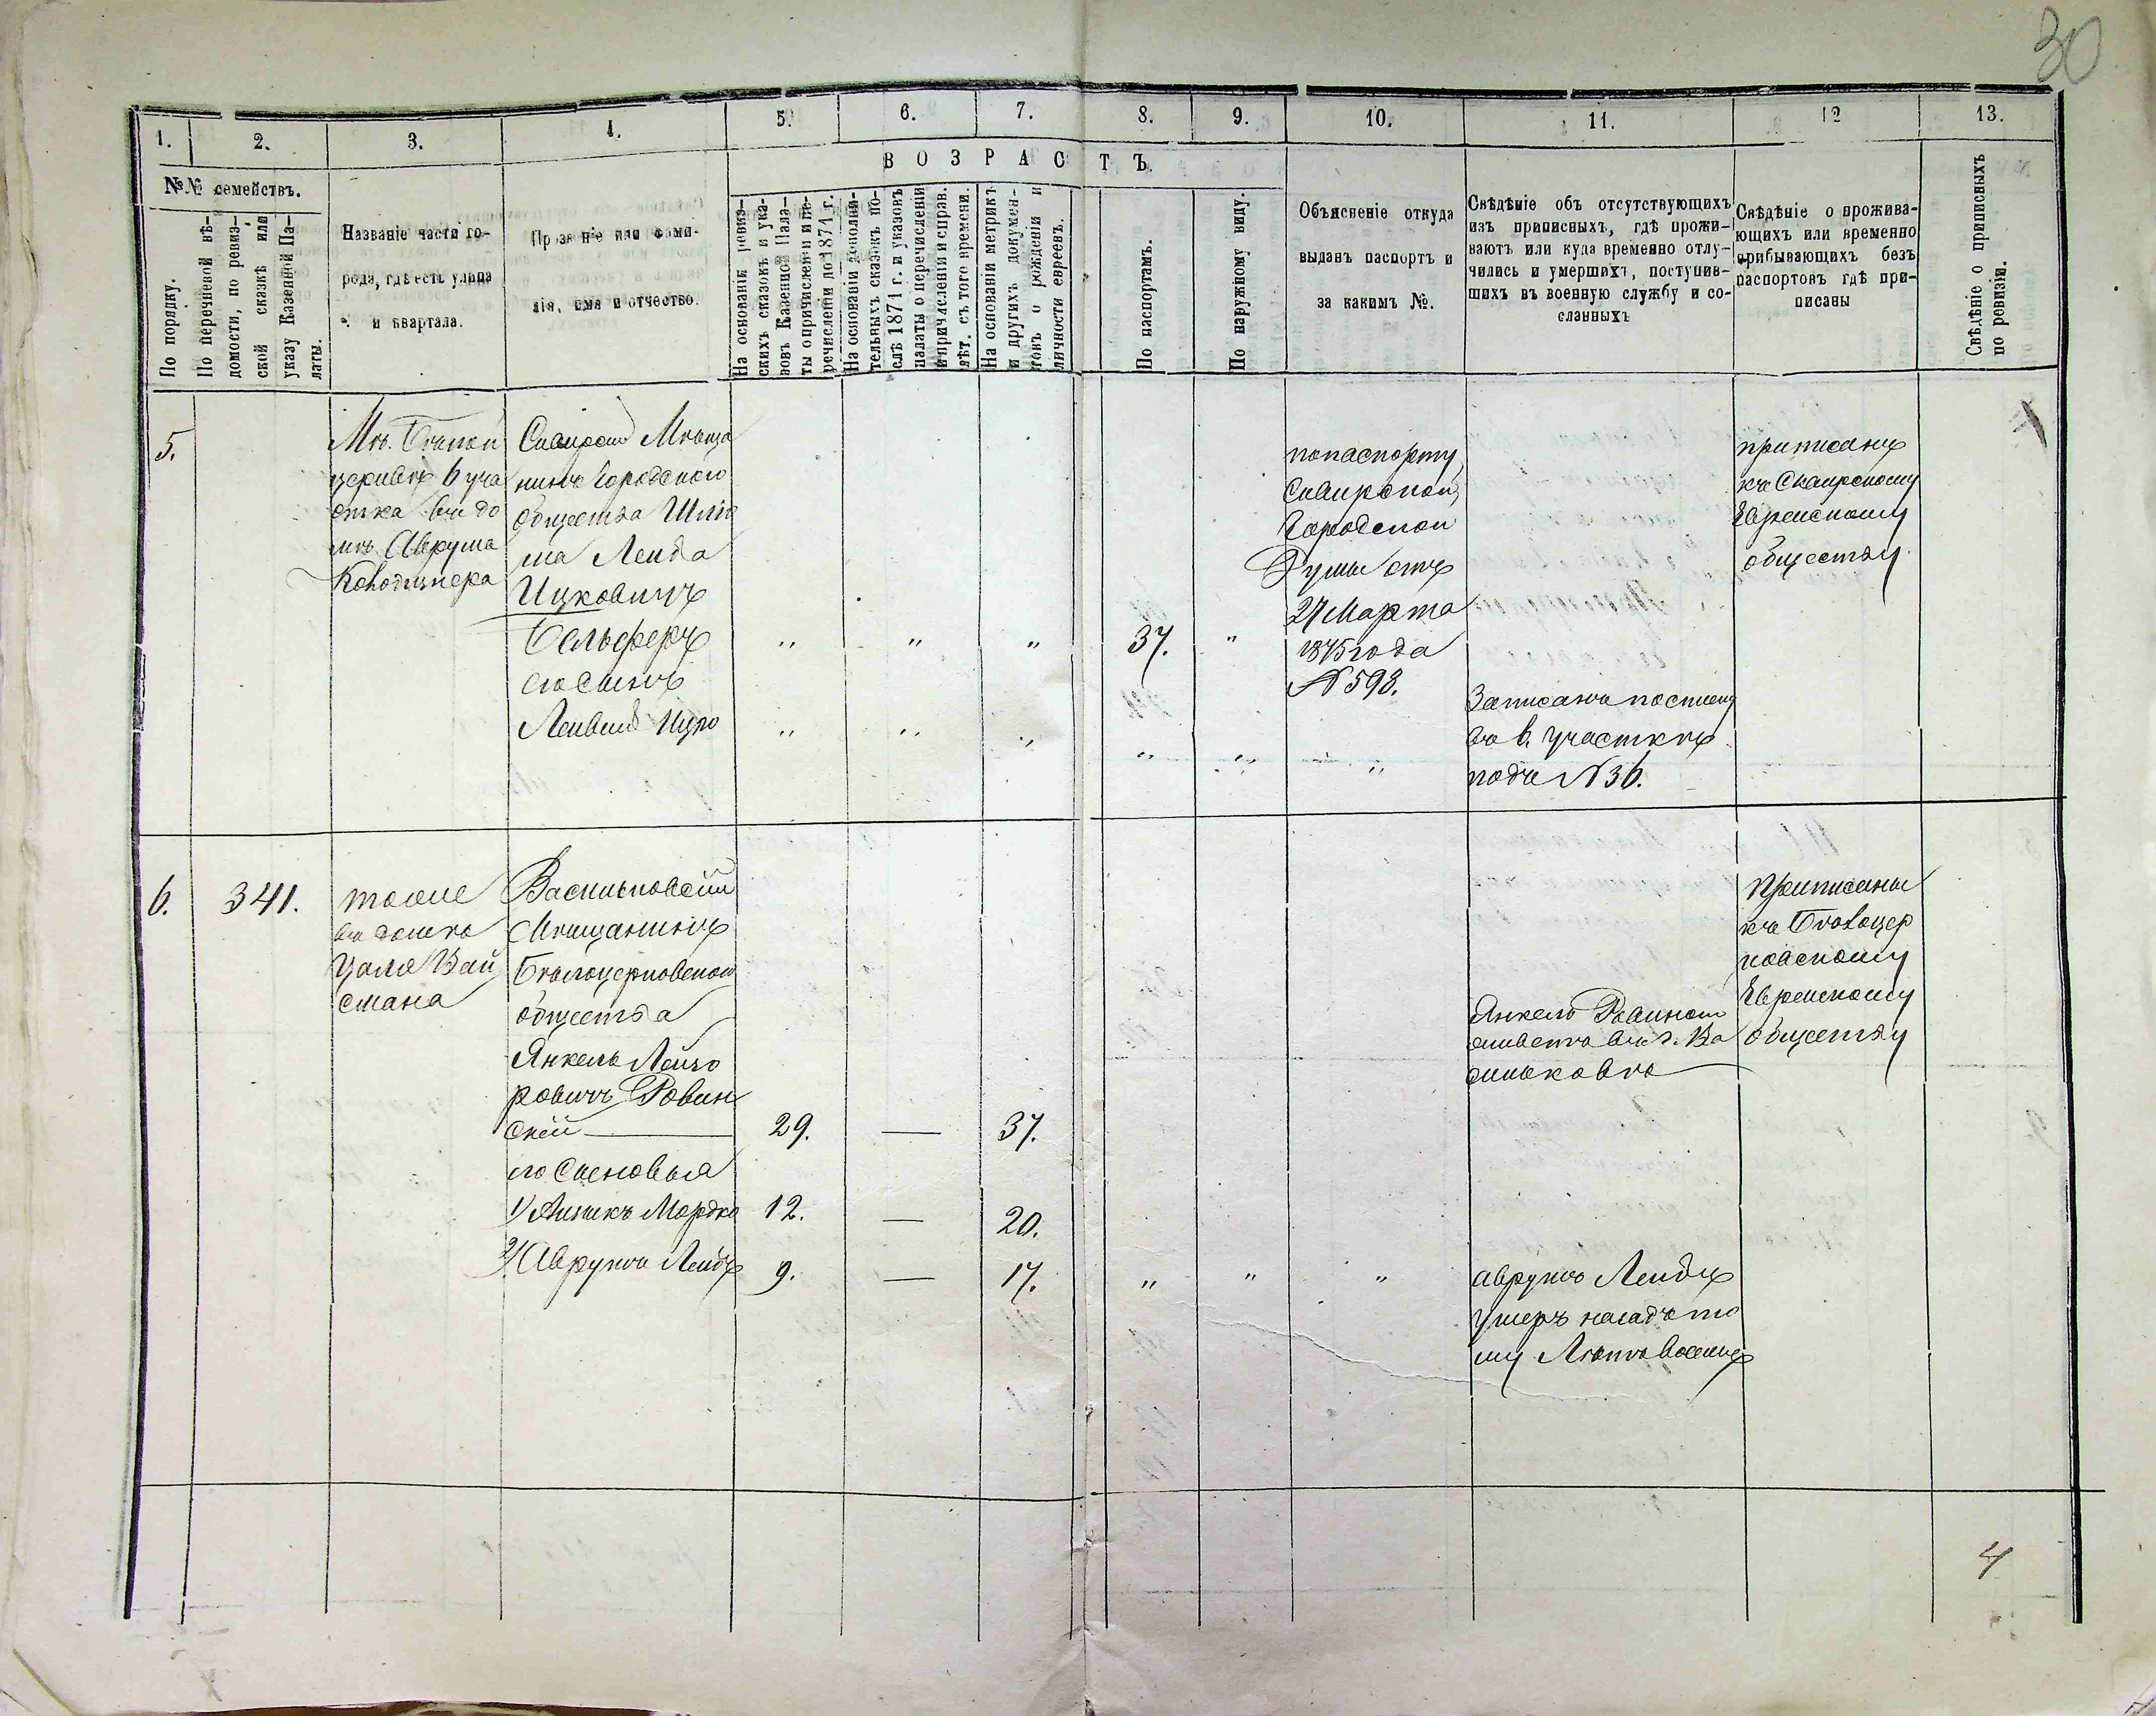 30
1.
2.
3.
4.
5.
6.
7.
8.
9.
10.
11.
12
13.
№№ семействъ.
ВОЗРАСТЪ.
По порядку.
По перечневой вѣ-
домости, по ревиз-
ской сказкѣ или
указу Казенной Па-
латы.
Названіе части го-
рода, гдѣ есть улица
и квартала.
Прозваніе или фами-
лія, имя и отчество.
На основаніи ревиз-
скихъ сказокъ и ука-
зовъ Казенной Пала-
ты о причисленіи и пе-
речисленіи до 1871 г.
На основаніи дополни-
тельныхъ сказокъ по-
слѣ 1871 г. и указовъ
палаты о перечисленіи
и причисленіи и справ.
лѣт. съ того времени.
На основаніи метрикъ
и другихъ докумен-
товъ о рожденіи и
личности евреевъ.
По паспортамъ.
По наружному виду.
Объясненіе откуда
выданъ паспортъ и
за какимъ №.
Свѣдѣніе объ отсутствующихъ
изъ приписныхъ, гдѣ прожи-
ваютъ или куда временно отлу-
чились и умершихъ, поступив-
шихъ въ военную службу и со-
сланныхъ
Свѣдѣніе о прожива-
ющихъ или временно
прибывающихъ безъ
паспортовъ гдѣ при-
писаны
Свѣдѣніе о приписныхъ
по ревизіи.
5.
Мѣ. Бѣлой
церквѣ 6 уча
стка въ до
мѣ Аврума
Сквирскій Мѣща
нинъ Городского
общества Шлио
ма Лейба
Ицковичъ
Бельферъ
его сынъ
Лейвишъ Ицко
" " " 37. "
" " " " " "
попаспорту
Сквирской
Городской
Думы отъ
27 Марта
1875 года
№ 598.
Записанъ
въ 6. участкѣ
подъ № 36.
приписанъ
къ Сквирскому
Еврейскому
обществу.
6.
341.
тоже
въ домѣ
Цаля Вай
смана
Васильковскій
Мѣщанинъ
Бѣлоцерковского
общества
Янкель Лейзо
ровичъ Ровин
скій 29. — 37.
его Сыновья
1) Айзикъ Мордко 12. — 20.
2) Аврумъ Лейбъ 9. — 17. " " "
Янкель Ровинскій
живетъ въ г. Ва
сильковѣ
аврумъ Лейбъ
умеръ назадъ то
му Лѣтъ восемь
Приписаны
къ Бѣлоцер
ковскому
Еврейскому
обществу
4